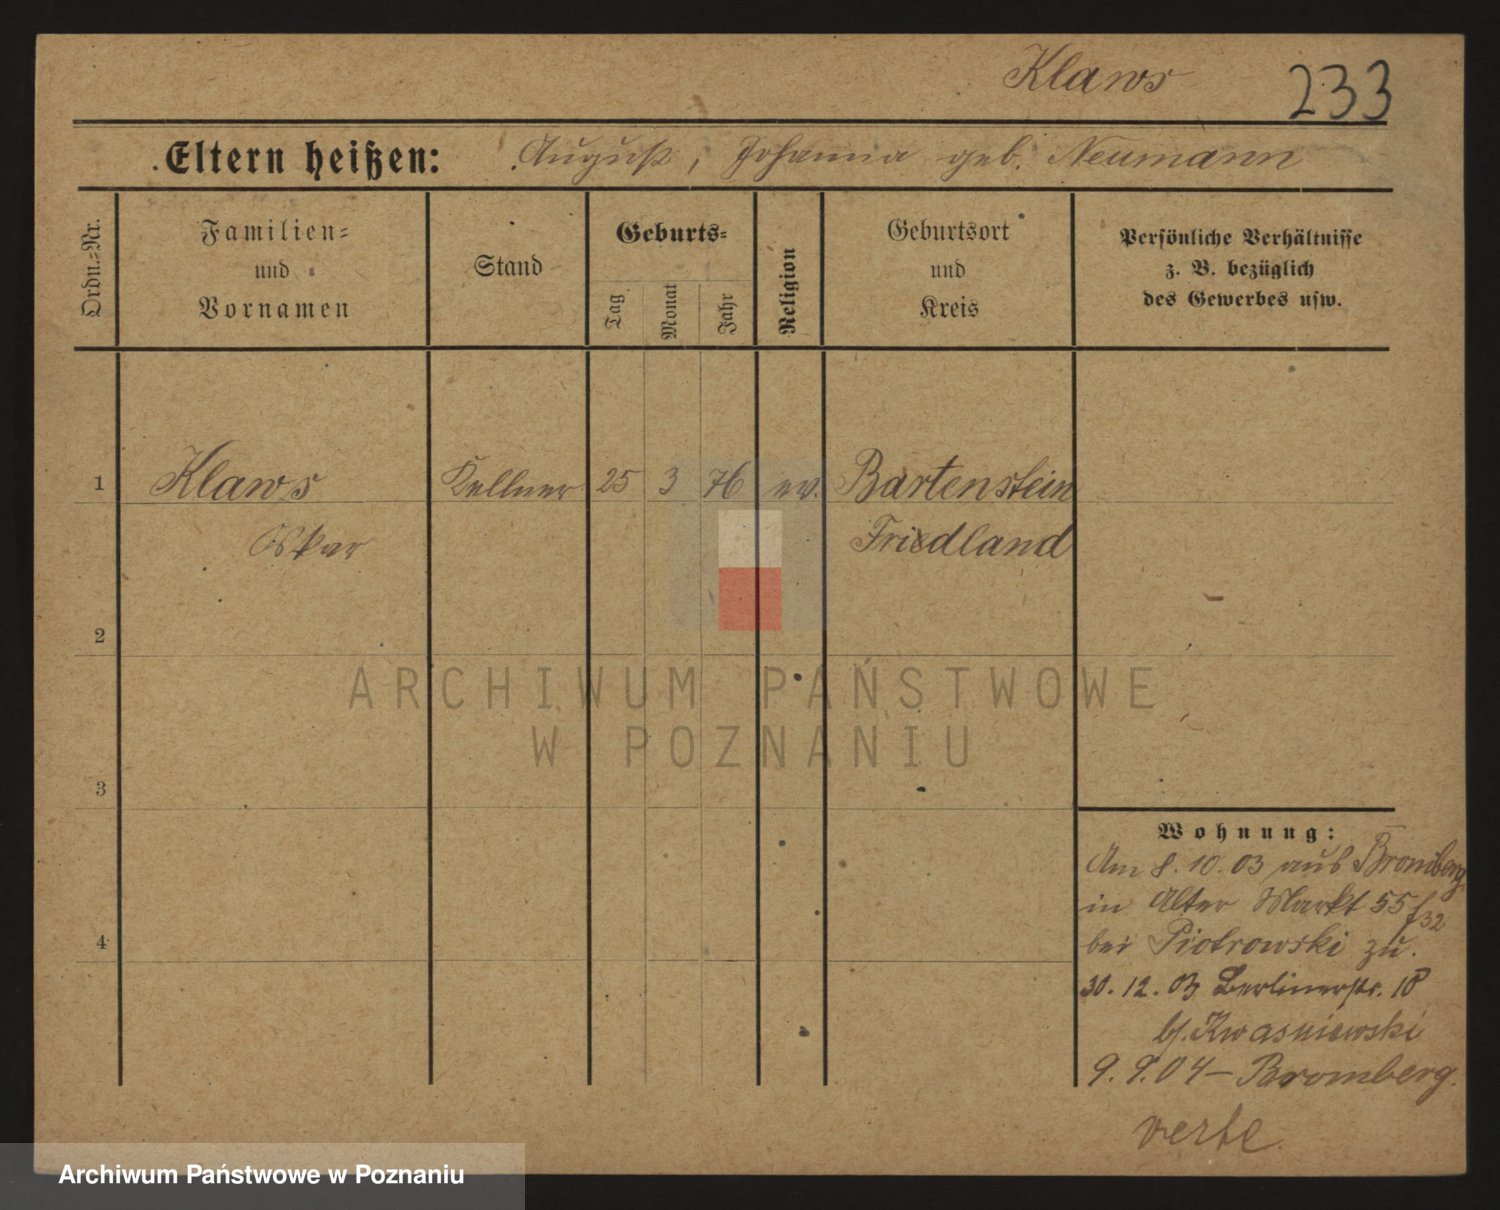 Klaws 233
Eltern heißen: August, Johanna geb. Neumann
Ordn.-Nr.
Familien-
und
Vornamen
Stand
Geburts-
Tag
Monat
Jahr
Religion
Geburtsort
und
Kreis
Persönliche Verhältnisse
z. B. bezüglich
des Gewerbes usw.
1 Klaws Kellner 25 3 76 ev. Bartenstein
Oskar Friedland
2
3
4
Wohnung:
Am 8. 10. 03 aus Bromberg
in Alter Markt 55
bei Piotrowski zu.
30. 12. 03 Berlinerstr. 10
b/. Kwasniewski
9. 9. 04 – Bromberg.
verte.
ARCHIWUM PAŃSTWOWE
W POZNANIU
Archiwum Państwowe w Poznaniu